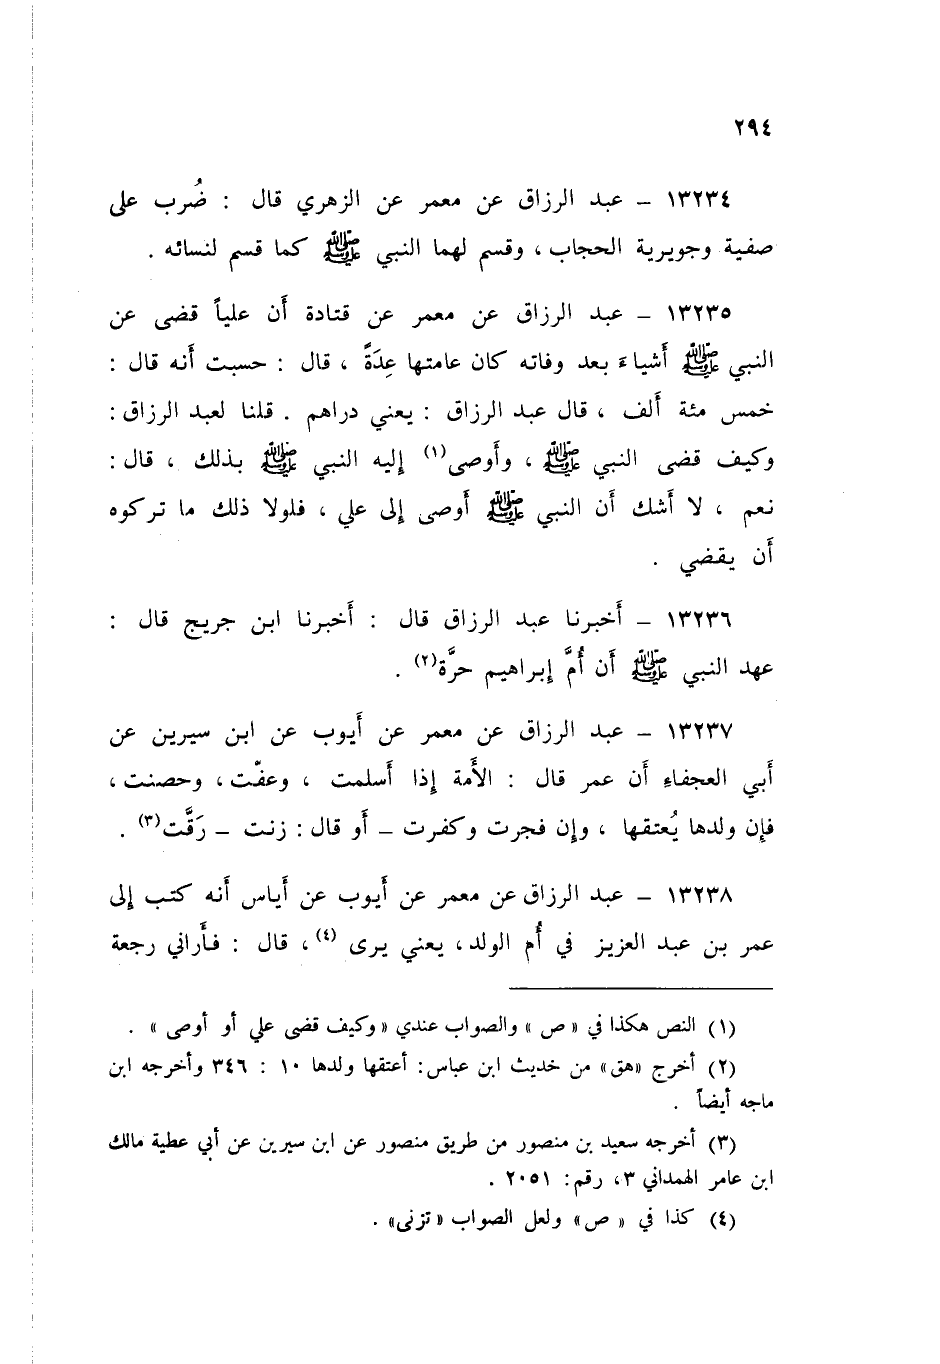 ٢٩٤
١٣٢٣٤ – عبد الرزاق عن معمر عن الزهري قال : ضُرب على
صفية وجويرية الحجاب ، وقسم لهما النبي ﷺ كما قسم لنسائه .
١٣٢٣٥ – عبد الرزاق عن معمر عن قتادة أن علياً قضى عن
النبي ﷺ أشياءَ بعد وفاته كان عامتها عِدَةً ، قال : حسبت أنه قال :
خمس مئة ألف ، قال عبد الرزاق : يعني دراهم . قلنا لعبد الرزاق :
وكيف قضى النبي ﷺ ، وأوصى(١) إليه النبي ﷺ بذلك ، قال :
نعم ، لا أشك أن النبي ﷺ أوصى إلى علي ، فلولا ذلك ما تركوه
أن يقضي .
١٣٢٣٦ – أخبرنا عبد الرزاق قال : أخبرنا ابن جريج قال :
عهد النبي ﷺ أن أُمَّ إبراهيم حرَّة(٢) .
١٣٢٣٧ – عبد الرزاق عن معمر عن أيوب عن ابن سيرين عن
أبي العجفاءِ أن عمر قال : الأَمة إذا أسلمت ، وعفّت ، وحصنت ،
فإن ولدها يُعتقها ، وإن فجرت وكفرت – أو قال : زنت – رَقَّت(٣) .
١٣٢٣٨ – عبد الرزاق عن معمر عن أيوب عن أياس أنه كتب إلى
عمر بن عبد العزيز في أُم الولد ، يعني يرى (٤) ، قال : فأَراني رجعة
(١) النص هكذا في « ص » والصواب عندي « وكيف قضى علي أو أوصى » .
(٢) أخرج «هق» من خديث ابن عباس: أعتقها ولدها ١٠ : ٣٤٦ وأخرجه ابن
ماجه أيضاً .
(٣) أخرجه سعيد بن منصور من طريق منصور عن ابن سيرين عن أبي عطية مالك
ابن عامر الهمداني ٣، رقم: ٢٠٥١ .
(٤) كذا في « ص » ولعل الصواب «تزنى» .